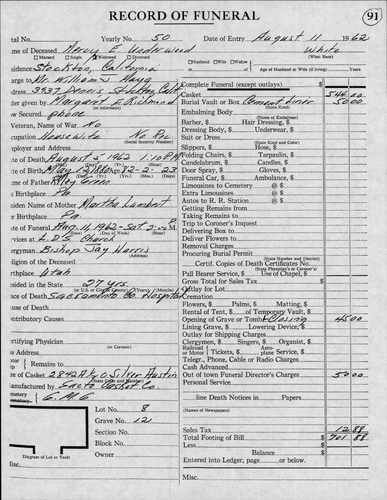 RECORD OF FUNERAL
91
tal No. Yearly No. 50 Date of Entry August 11 1962
me of Deceased Mercy E Underwood White
Married Single Widowed Divorced Husband Wife Widow (What Race)
sidence Stockton, California Age of Husband or Wife (if living) Years
arge to Mr. William J Complete Funeral (except outlays) $
dress 3937 Dennis Stockton Calif Casket 546.00
der given by Margaret E Richmond Burial Vault or Box Cement Liner 50.00
w Secured phone Embalming Body
(Name of Embalmer)
Veteran, Name of War No Barber, $ Hair Dressing, $
(Social Security Number)
cupation Housewife No Rec Dressing Body, $ Underwear, $
Suit or Dress
(State Kind and Color)
ployer and Address Slippers, $ Hose, $
te of Death August 5 1962 1:10 P.M. Folding Chairs, $ Tarpaulin, $
Candelabrum, $ Candles, $
te of Birth 12-2-23 Door Spray, $ Gloves, $
me of Father Riley Green Funeral Car, $ Ambulance, $
s Birthplace Pa Limousines to Cemetery @ $
Extra Limousines @ $
iden Name of Mother Martha Lambert Autos to R. R. Station @ $
r Birthplace Pa. Getting Remains from
Taking Remains to
te of Funeral Aug. 11, 1962 - Sat. Trip to Coroner's Inquest
vices at L.D.S. Church Delivering Box to
Deliver Flowers to
rgyman Bishop Jay Harris Removal Charges
(Address)
ligion of the Deceased Procuring Burial Permit
(State Number and District)
Certif. Copies of Death Certificates No.
(State Physician's or Coroner's)
rthplace Utah Pall Bearer Service, $ Use of Chapel, $
sided in the State 27 yrs. Gross Total for Sales Tax $
Outlay for Lot
ace of Death Sacramento Co. Hospital Cremation
use of Death Flowers, $ Palms, $ Matting, $
Rental of Tent, $ of Temporary Vault, $
ntributory Causes Opening of Grave or Tomb 45.00
Lining Grave, $ Lowering Device, $
Outlay for Shipping Charges
rtifying Physician Clergymen, $ Singers, $ Organist, $
(or Coroner)
is Address Railroad or Motor Tickets, $ Aeroplane Service, $
Remains to Telegr., Phone, Cable or Radio Charges
Cash Advanced
e of Casket Silver Austin Out of town Funeral Director's Charge, $ 50.00
anufactured by Sacto Casket Co. Personal Service
metery line Death Notices in Papers
(Names of Newspapers)
Lot No. 8
Grave No. 12 Sales Tax 12 88
Section No. Total Footing of Bill $ 701 88
Block No. Less $
Owner Balance $
Diagram of Lot or Vault Entered into Ledger, page or below.
isc. Misc.